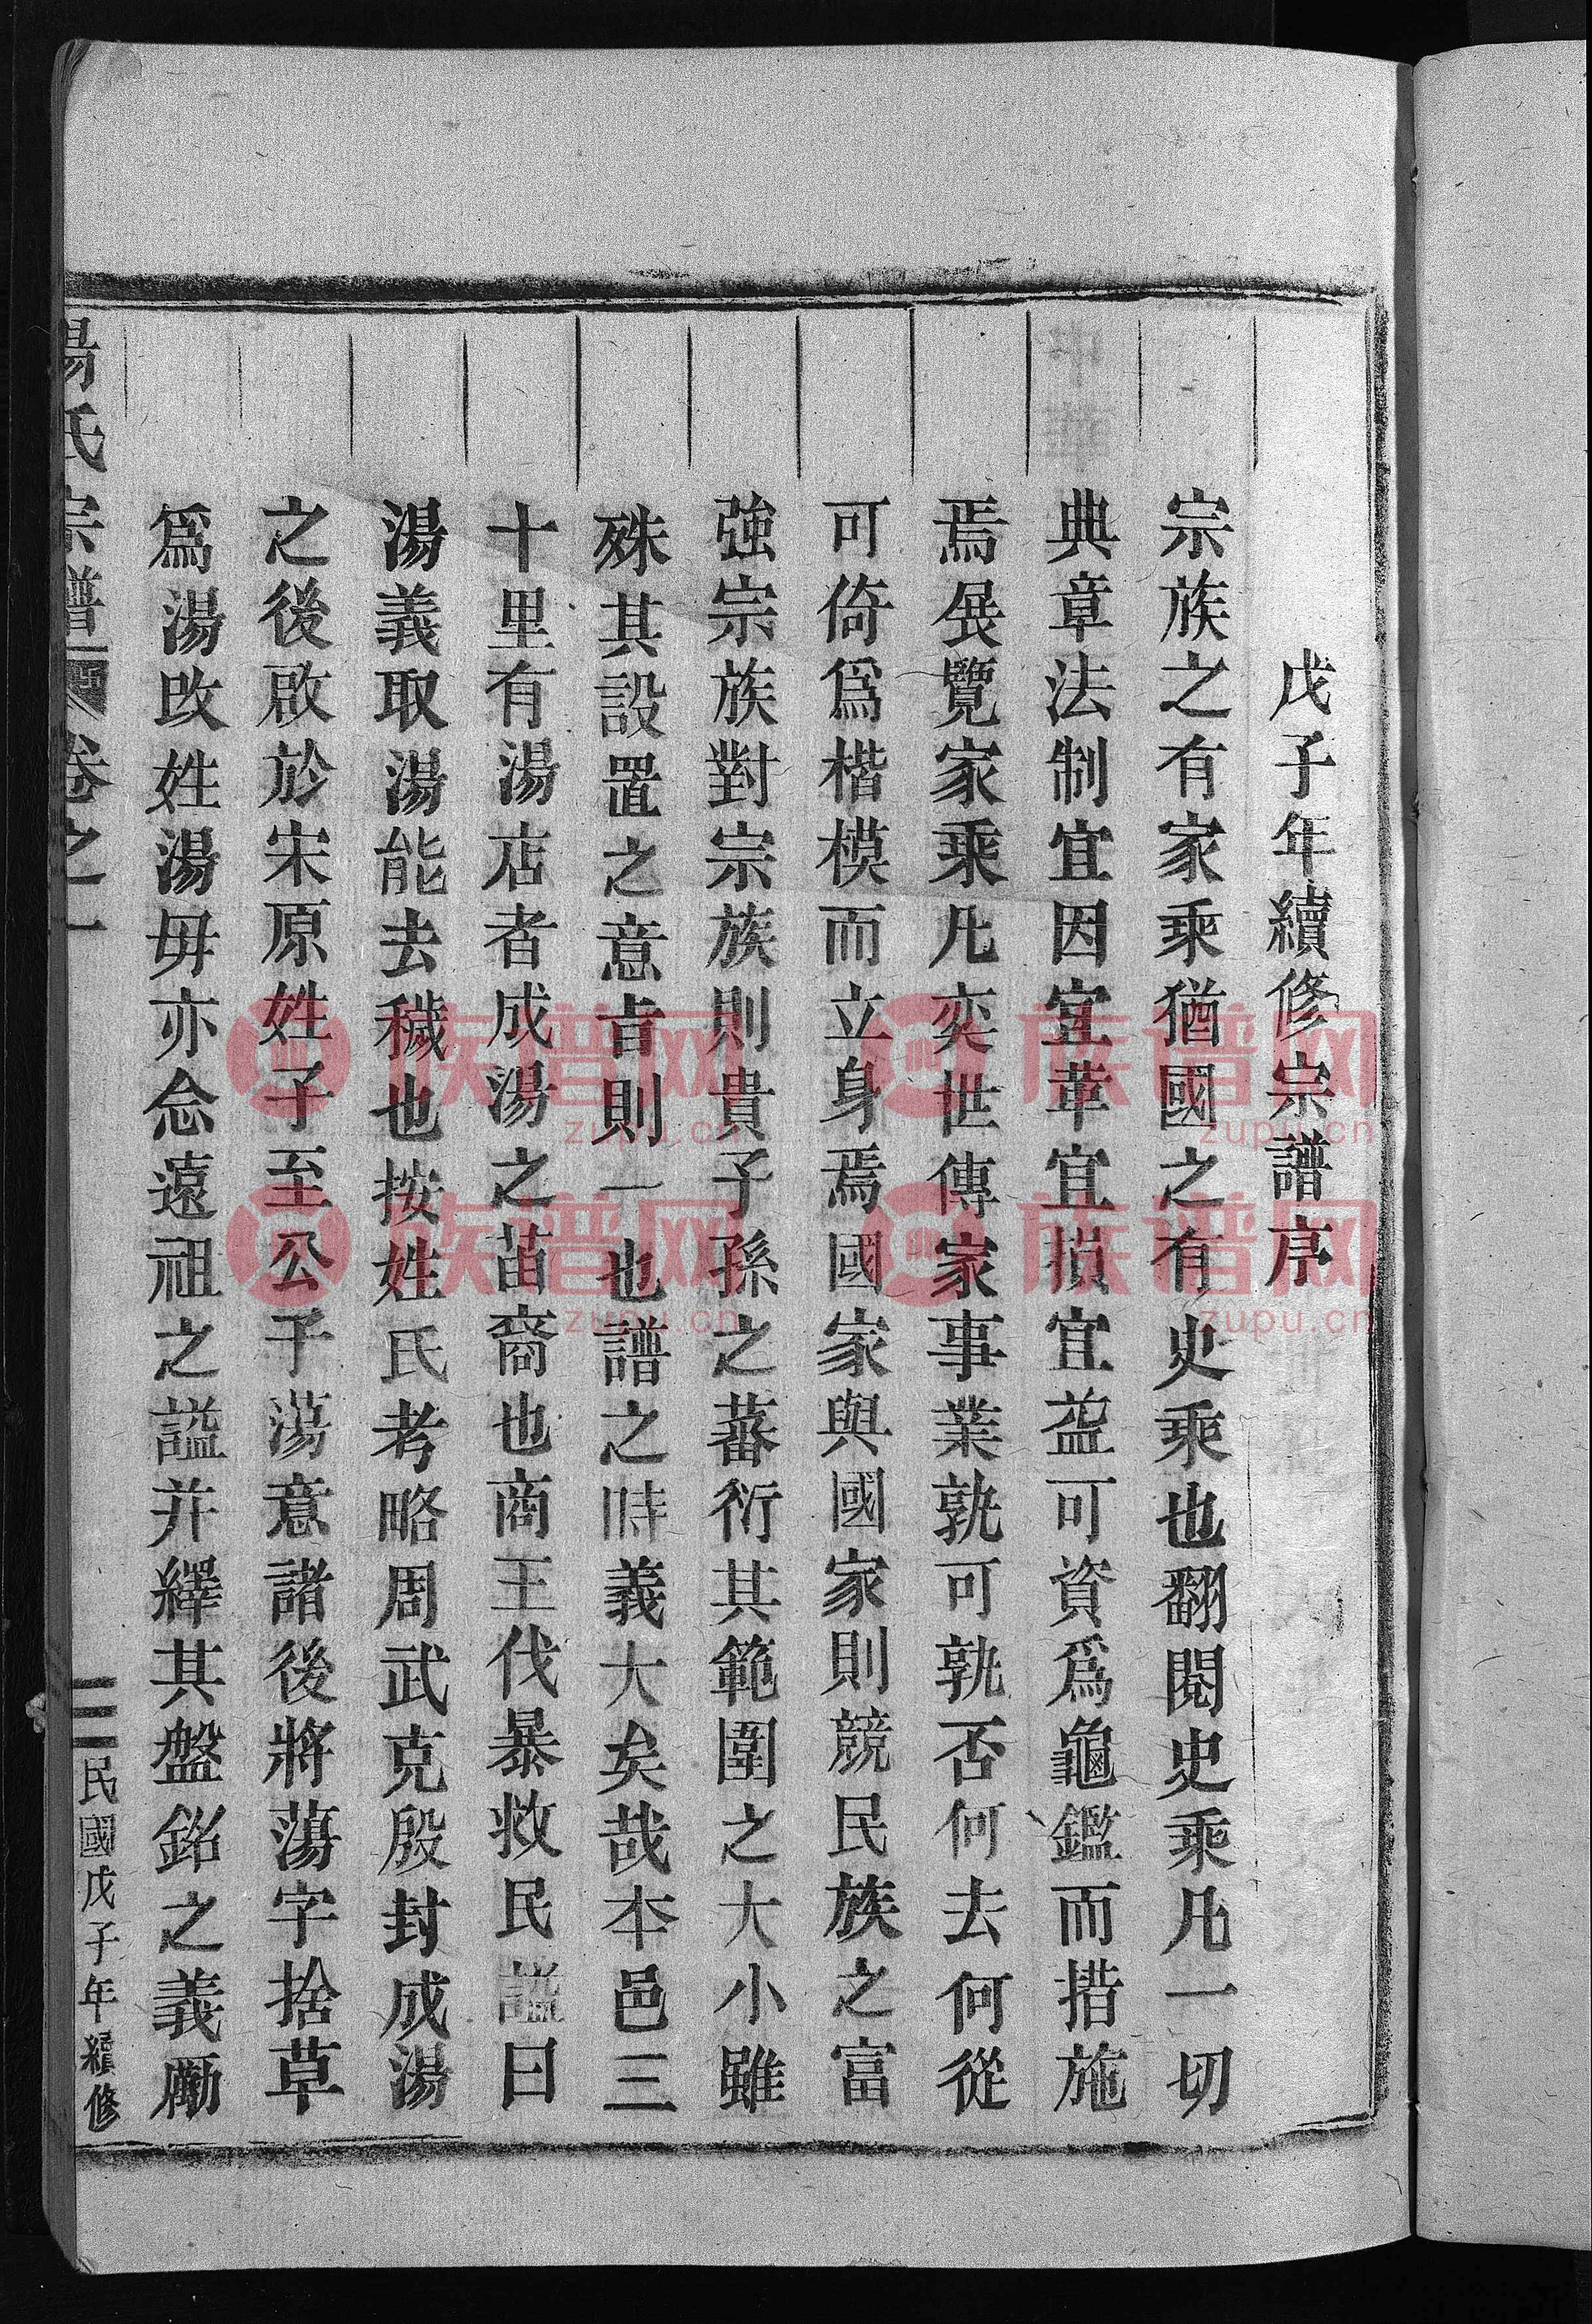 戊子年續修宗譜序
宗族之有家乘猶國之有史乘也翻閱史乘凡一切
典章法制宜因宜革宜損宜益可資爲龜鑑而措施
焉展覽家乘凡奕世傳家事業孰可孰否何去何從
可倚爲楷模而立身焉國家與國家則競民族之富
強宗族對宗族則貴子孫之蕃衍其範圍之大小雖
殊其設置之意旨則一也譜之時義大矣哉本邑三
十里有湯店者成湯之苗裔也商王伐暴救民謚曰
湯義取湯能去穢也按姓氏考略周武克殷封成湯
之後啟於宋原姓子至公子蕩意諸後將蕩字捨草
爲湯改姓湯毋亦念遠祖之謚并繹其盤銘之義勵
湯氏宗譜 卷之一 三 民國戊子年續修
族谱网 zupu.cn
族谱网 zupu.cn
族谱网 zupu.cn
族谱网 zupu.cn